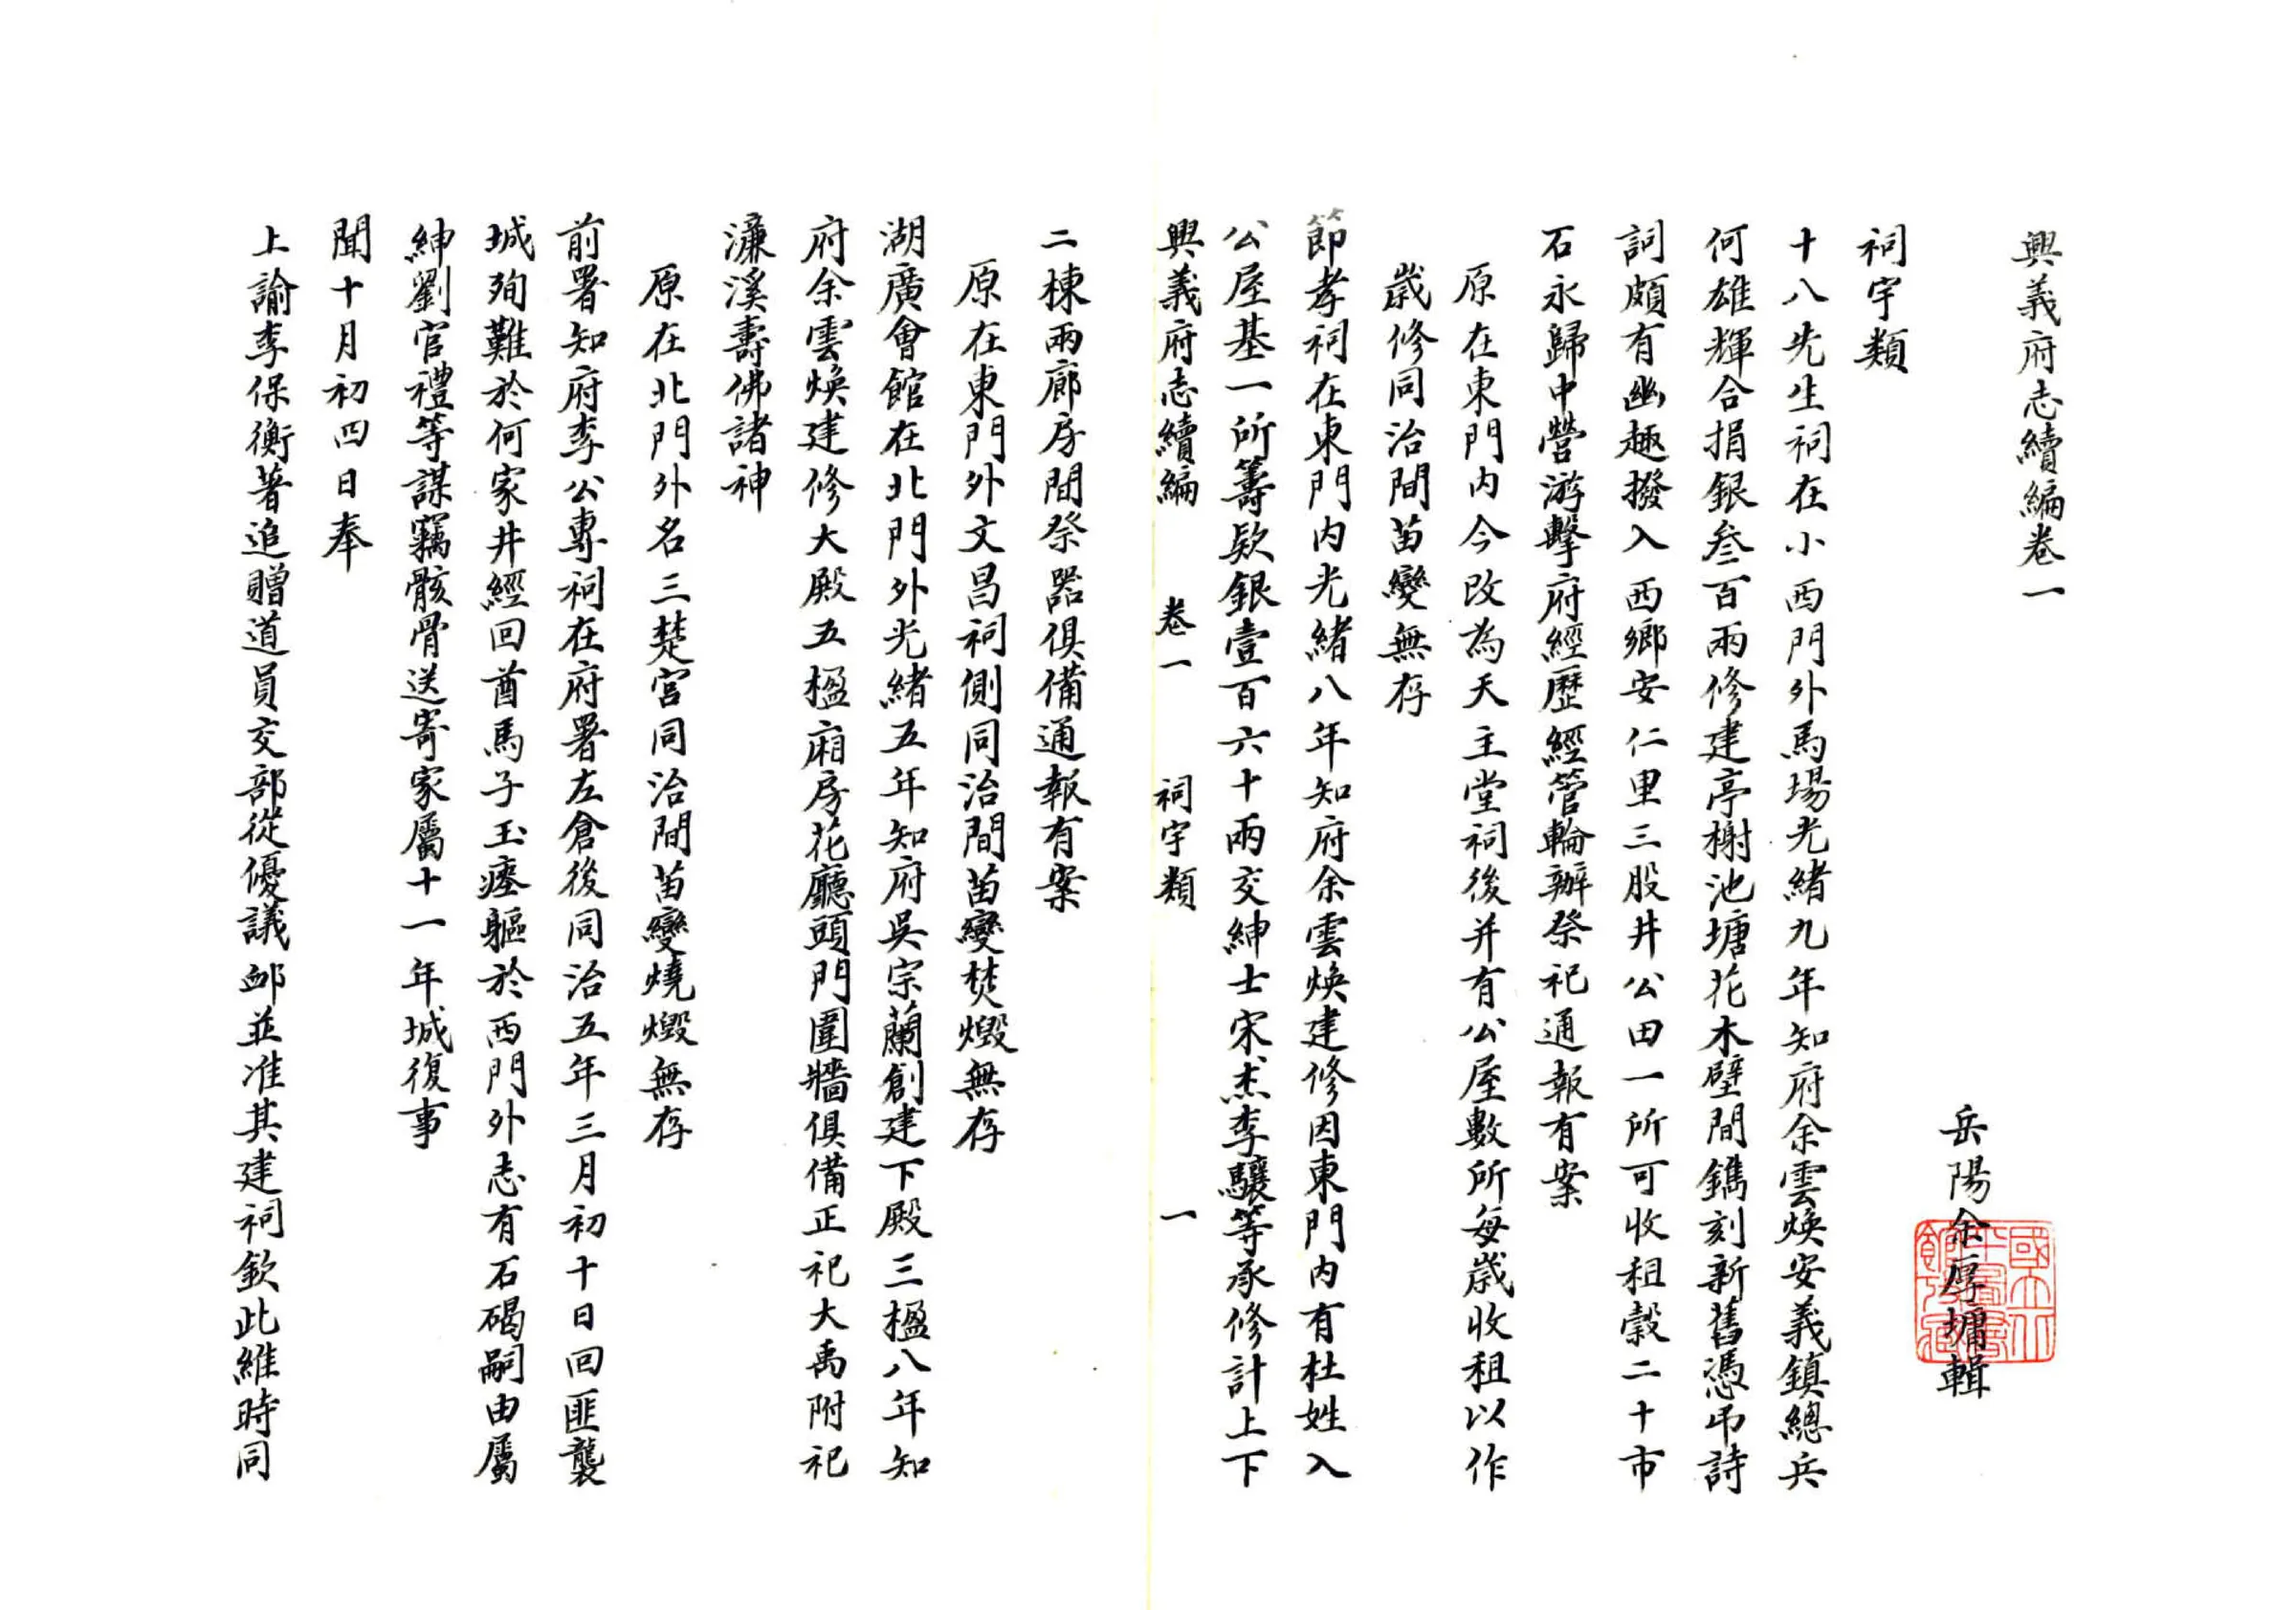 興義府志續編卷一
岳陽余厚墉輯
祠宇類
十八先生祠在小西門外馬場光緒九年知府余雲煥安義鎮總兵
何雄輝合捐銀叁百兩修建亭榭池塘花木壁間鐫刻新舊憑弔詩
詞頗有幽趣撥入西鄉安仁里三股井公田一所可收租穀二十市
石永歸中營游擊府經歷經管輪辦祭祀通報有案
原在東門內今改為天主堂祠後并有公屋數所每歲收租以作
歲修同治間苗變無存
節孝祠在東門內光緒八年知府余雲煥建修因東門內有杜姓入
公屋基一所籌欵銀壹百六十兩交紳士宋杰李驤等承修計上下
興義府志續編 卷一 祠宇類 一
二棟兩廊房間祭器俱備通報有案
原在東門外文昌祠側同治間苗變焚燬無存
湖廣會館在北門外光緒五年知府吳宗蘭創建下殿三楹八年知
府余雲煥建修大殿五楹廂房花廳頭門圍牆俱備正祀大禹附祀
濂溪壽佛諸神
原在北門外名三楚宮同治間苗變燒燬無存
前署知府李公專祠在府署左倉後同治五年三月初十日回匪襲
城殉難於何家井經回酋馬子玉瘞軀於西門外志有石碣嗣由屬
紳劉官禮等謀竊骸骨送寄家屬十一年城復事
聞十月初四日奉
上諭李保衡著追贈道員交部從優議卹並准其建祠欽此維時同